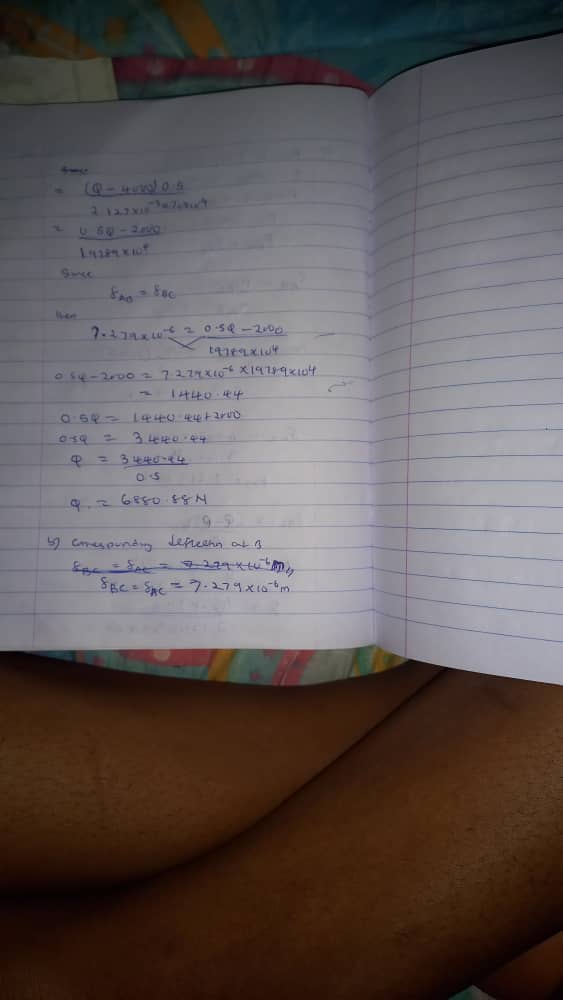 Since
= (Q - 4000) 0.5
= 0.5Q - 2000
19789 x 10⁴
Since
δAB = δBC
then
7.279 x 10⁻⁶ = 0.5Q - 2000
19789 x 10⁴
0.5Q - 2000 = 7.279 x 10⁻⁶ x 19789 x 10⁴
= 1440.44
0.5Q = 1440.44 + 2000
0.5Q = 3440.44
Q = 3440.44
0.5
Q = 6880.88N
b) Corresponding deflection at B
δBC = δAC = 7.279 x 10⁻⁶ m
δBC = δAC = 7.279 x 10⁻⁶ m